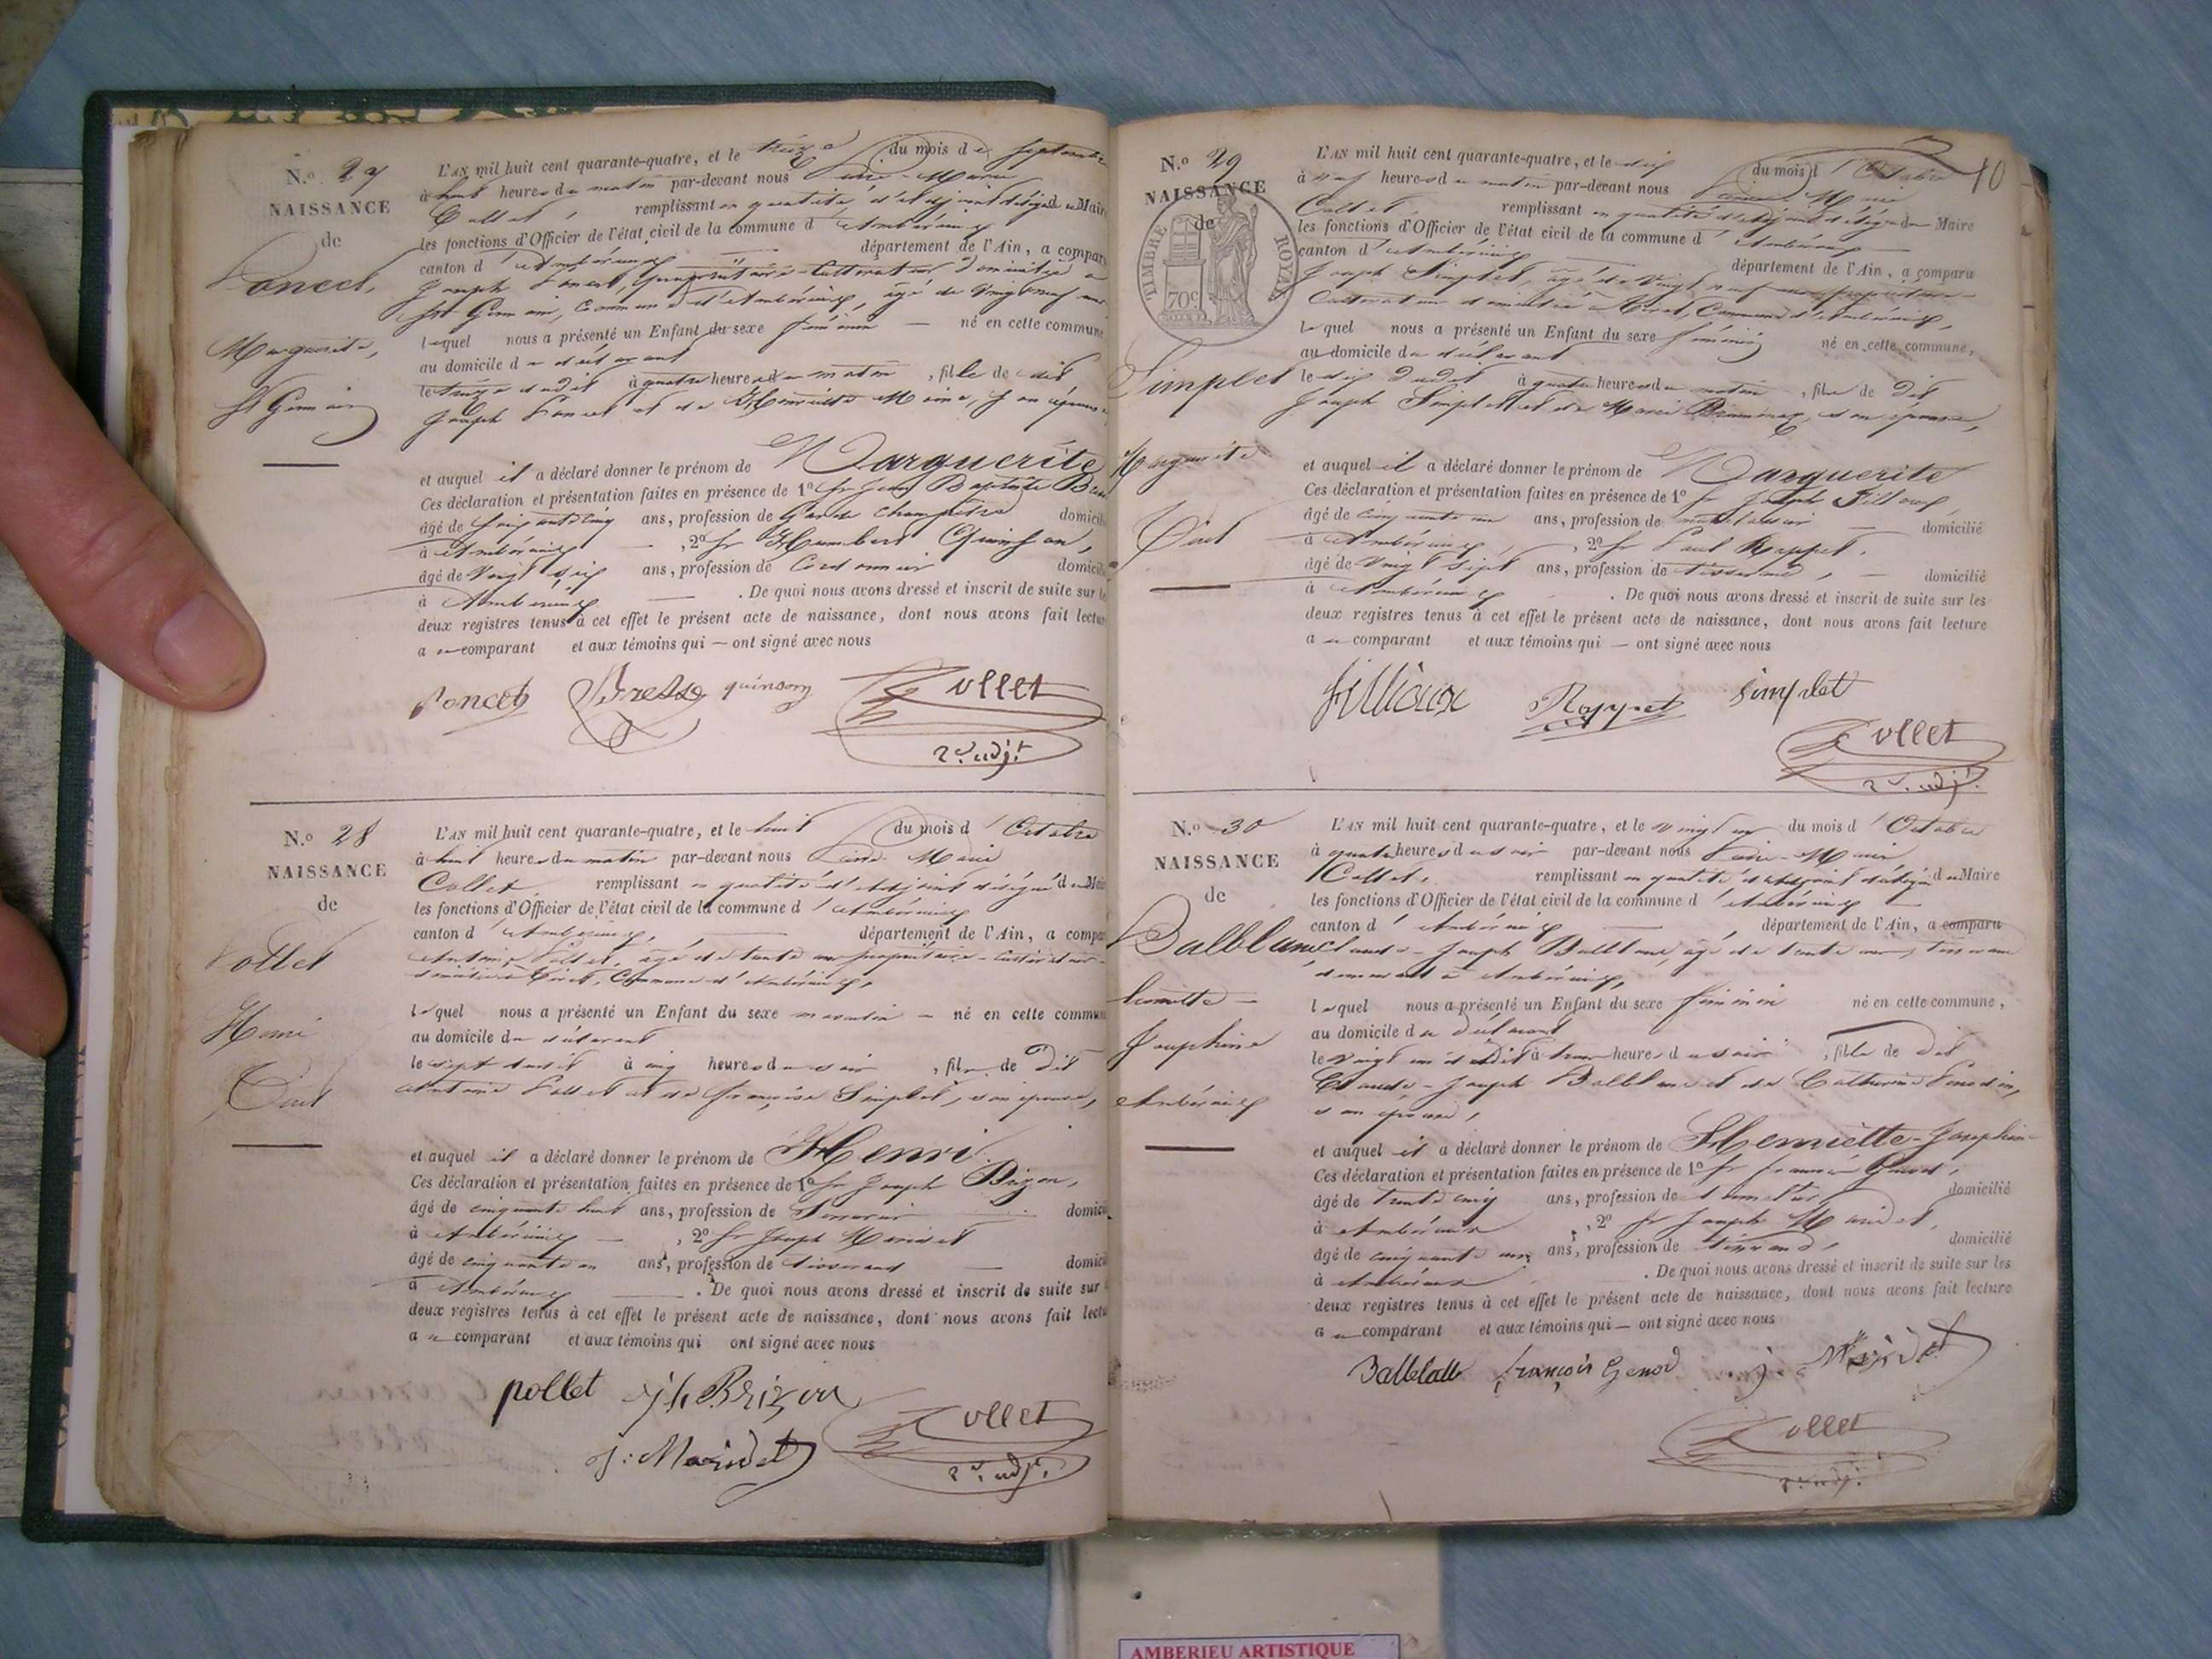 N.o 27
NAISSANCE
de
Poncet,
Marguerite,
St Germain
L'AN mil huit cent quarante-quatre, et le treize du mois de Septembre
à huit heures du matin par-devant nous Pierre-Marie
Collet, remplissant en qualité d'adjoint délégué du Maire
les fonctions d'Officier de l'état civil de la commune d'Ambérieux
canton d'Ambérieux département de l'Ain, a compar
Joseph Poncet, propriétaire-Cultivateur domicilié à
St Germain, Commune d'Ambérieux, âgé de vingt neuf ans
lequel nous a présenté un Enfant du sexe féminin né en cette commune
au domicile du déclarant
le treize dudit à quatre heures du matin, fille de dit
Joseph Poncet et de Henriette Moine, son épouse,
et auquel il a déclaré donner le prénom de Marguerite
Ces déclaration et présentation faites en présence de 1o Sr Jean Baptiste
âgé de ans, profession de Garde Champêtre domicili
à Ambérieux, 2o Sr Humbert Quinson,
âgé de vingt six ans, profession de Cordonnier domicili
à Ambérieux. De quoi nous avons dressé et inscrit de suite sur le
deux registres tenus à cet effet le présent acte de naissance, dont nous avons fait lectur
au comparant et aux témoins qui ont signé avec nous
Poncet Bresse quinson Collet
2e adjt
N.o 28
NAISSANCE
de
Pollet
Henri
L'AN mil huit cent quarante-quatre, et le huit du mois d'Octobre
à huit heures du matin par-devant nous Pierre-Marie
Collet remplissant en qualité d'Adjoint délégué du Mai
les fonctions d'Officier de l'état civil de la commune d'Ambérieux
canton d'Ambérieux, département de l'Ain, a compar
Antoine Pollet, âgé de trente ans propriétaire-cultivateur
domicilié à Commune d'Ambérieux,
lequel nous a présenté un Enfant du sexe masculin né en cette commun
au domicile du déclarant
le sept dudit à cinq heures du soir, fils de Dit
Antoine Pollet et de Françoise Simplet, son épouse,
et auquel il a déclaré donner le prénom de Henri
Ces déclaration et présentation faites en présence de 1o Sr Joseph Brizon,
âgé de cinquante huit ans, profession de Serrurier domici
à Ambérieux, 2o Sr Joseph Maridet
âgé de cinquante un ans, profession de tisserand domici
à Ambérieux. De quoi nous avons dressé et inscrit de suite sur
deux registres tenus à cet effet le présent acte de naissance, dont nous avons fait lectu
au comparant et aux témoins qui ont signé avec nous
pollet jh Brizon
J: Maridet Collet
2e adjt
10
N.o 29
NAISSANCE
de
TIMBRE ROYAL
70c
Simplet
Marguerite
L'AN mil huit cent quarante-quatre, et le dix du mois d'Octobre
à neuf heures du matin par-devant nous Pierre-Marie
Collet, remplissant en qualité d'adjoint délégué du Maire
les fonctions d'Officier de l'état civil de la commune d'Ambérieux
canton d'Ambérieux département de l'Ain, a comparu
Joseph Simplet, âgé de vingt neuf ans propriétaire-
Cultivateur domicilié à Commune d'Ambérieux,
lequel nous a présenté un Enfant du sexe féminin né en cette commune,
au domicile du déclarant
le dix dudit à quatre heures du matin, fille de Dit
Joseph Simplet et de Marie son épouse,
et auquel il a déclaré donner le prénom de Marguerite
Ces déclaration et présentation faites en présence de 1o Sr Joseph Fillioux
âgé de cinquante un ans, profession de matelassier domicilié
à Ambérieux, 2o Sr Paul Rappet,
âgé de vingt sept ans, profession de tisserand, domicilié
à Ambérieux. De quoi nous avons dressé et inscrit de suite sur les
deux registres tenus à cet effet le présent acte de naissance, dont nous avons fait lecture
au comparant et aux témoins qui ont signé avec nous
fillioux Rappet simplet
Collet
2e adjt
N.o 30
NAISSANCE
de
Balblanc
henriette
Josephine
Ambérieux
L'AN mil huit cent quarante-quatre, et le vingt un du mois d'Octobre
à quatre heures du soir par-devant nous Pierre-Marie
Collet, remplissant en qualité d'adjoint délégué du Maire
les fonctions d'Officier de l'état civil de la commune d'Ambérieux
canton d'Ambérieux département de l'Ain, a comparu
Claude-Joseph Balblanc, âgé de trente ans, tisserand
demeurant à Ambérieux,
lequel nous a présenté un Enfant du sexe féminin né en cette commune,
au domicile du déclarant
le vingt un dudit à heures du soir, fille de Dit
Claude-Joseph Balblanc et de Catherine
son épouse,
et auquel il a déclaré donner le prénom de Henriette-Josephine
Ces déclaration et présentation faites en présence de 1o Sr françois Genod,
âgé de trente cinq ans, profession de domicilié
à Ambérieux, 2o Sr Joseph Maridet,
âgé de cinquante un ans, profession de tisserand, domicilié
à Ambérieux. De quoi nous avons dressé et inscrit de suite sur les
deux registres tenus à cet effet le présent acte de naissance, dont nous avons fait lecture
au comparant et aux témoins qui ont signé avec nous
françois Genod J Maridet
Collet
2e adjt
AMBERIEU ARTISTIQUE